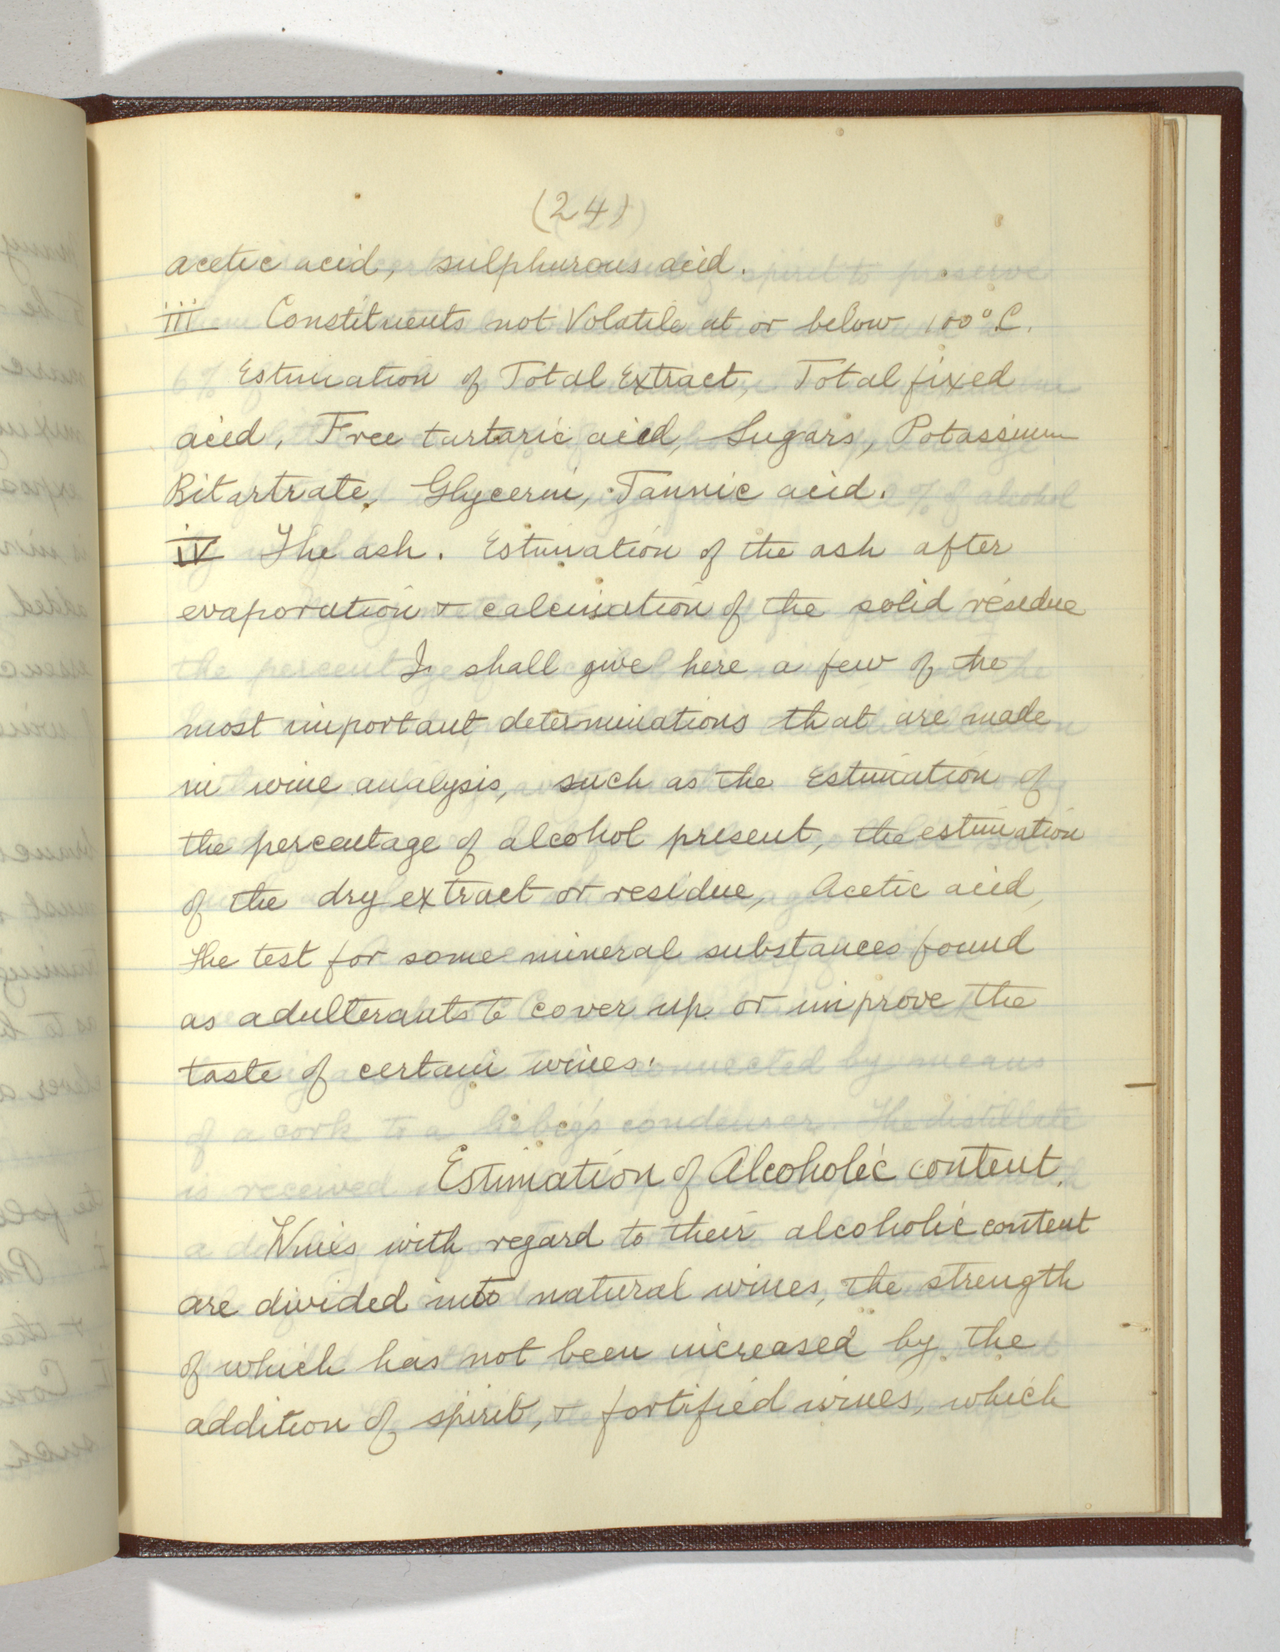 (24)
acetic acid, sulphurous acid.
iii Constituents not Volatile at or below 100° C.
Estimation of Total Extract, Total fixed
acid, Free tartaric acid, Sugars, Potassium
Bitartrate, Glycerin, Tannic acid.
iv The ash. Estimation of the ash after
evaporation & calcination of the solid residue
I shall give here a few of the
most important determinations that are made
in wine analysis, such as the Estimation of
the percentage of alcohol present, the estimation
of the dry extract or residue, Acetic acid,
the test for some mineral substances found
as adulterants to cover up or improve the
taste of certain wines.
Estimation of Alcoholic content.
Wines with regard to their alcoholic content
are divided into natural wines, the strength
of which has not been increased by the
addition of spirit, & fortified wines, which